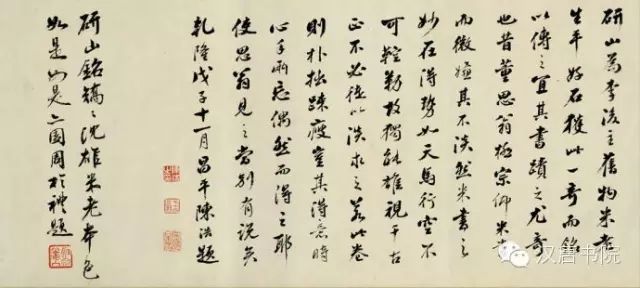 研山為李後主舊物米老
生平好石獲此一奇而銘
以傳之宜其書蹟之尤奇
也昔董思翁極宗仰米書
而微嫌其不淡然米書之
妙在得勢如天馬行空不
可控勒故獨能雄視千古
正不必徒以淡求之若此卷
則朴拙疎瘦豈其得意時
心手兩忘偶然而得之耶
使思翁見之當別有說矣
乾隆戊子十一月昌平陳浩題
研山銘矯矯沈雄米老本色
如是如是二園周於禮題
汉唐书院